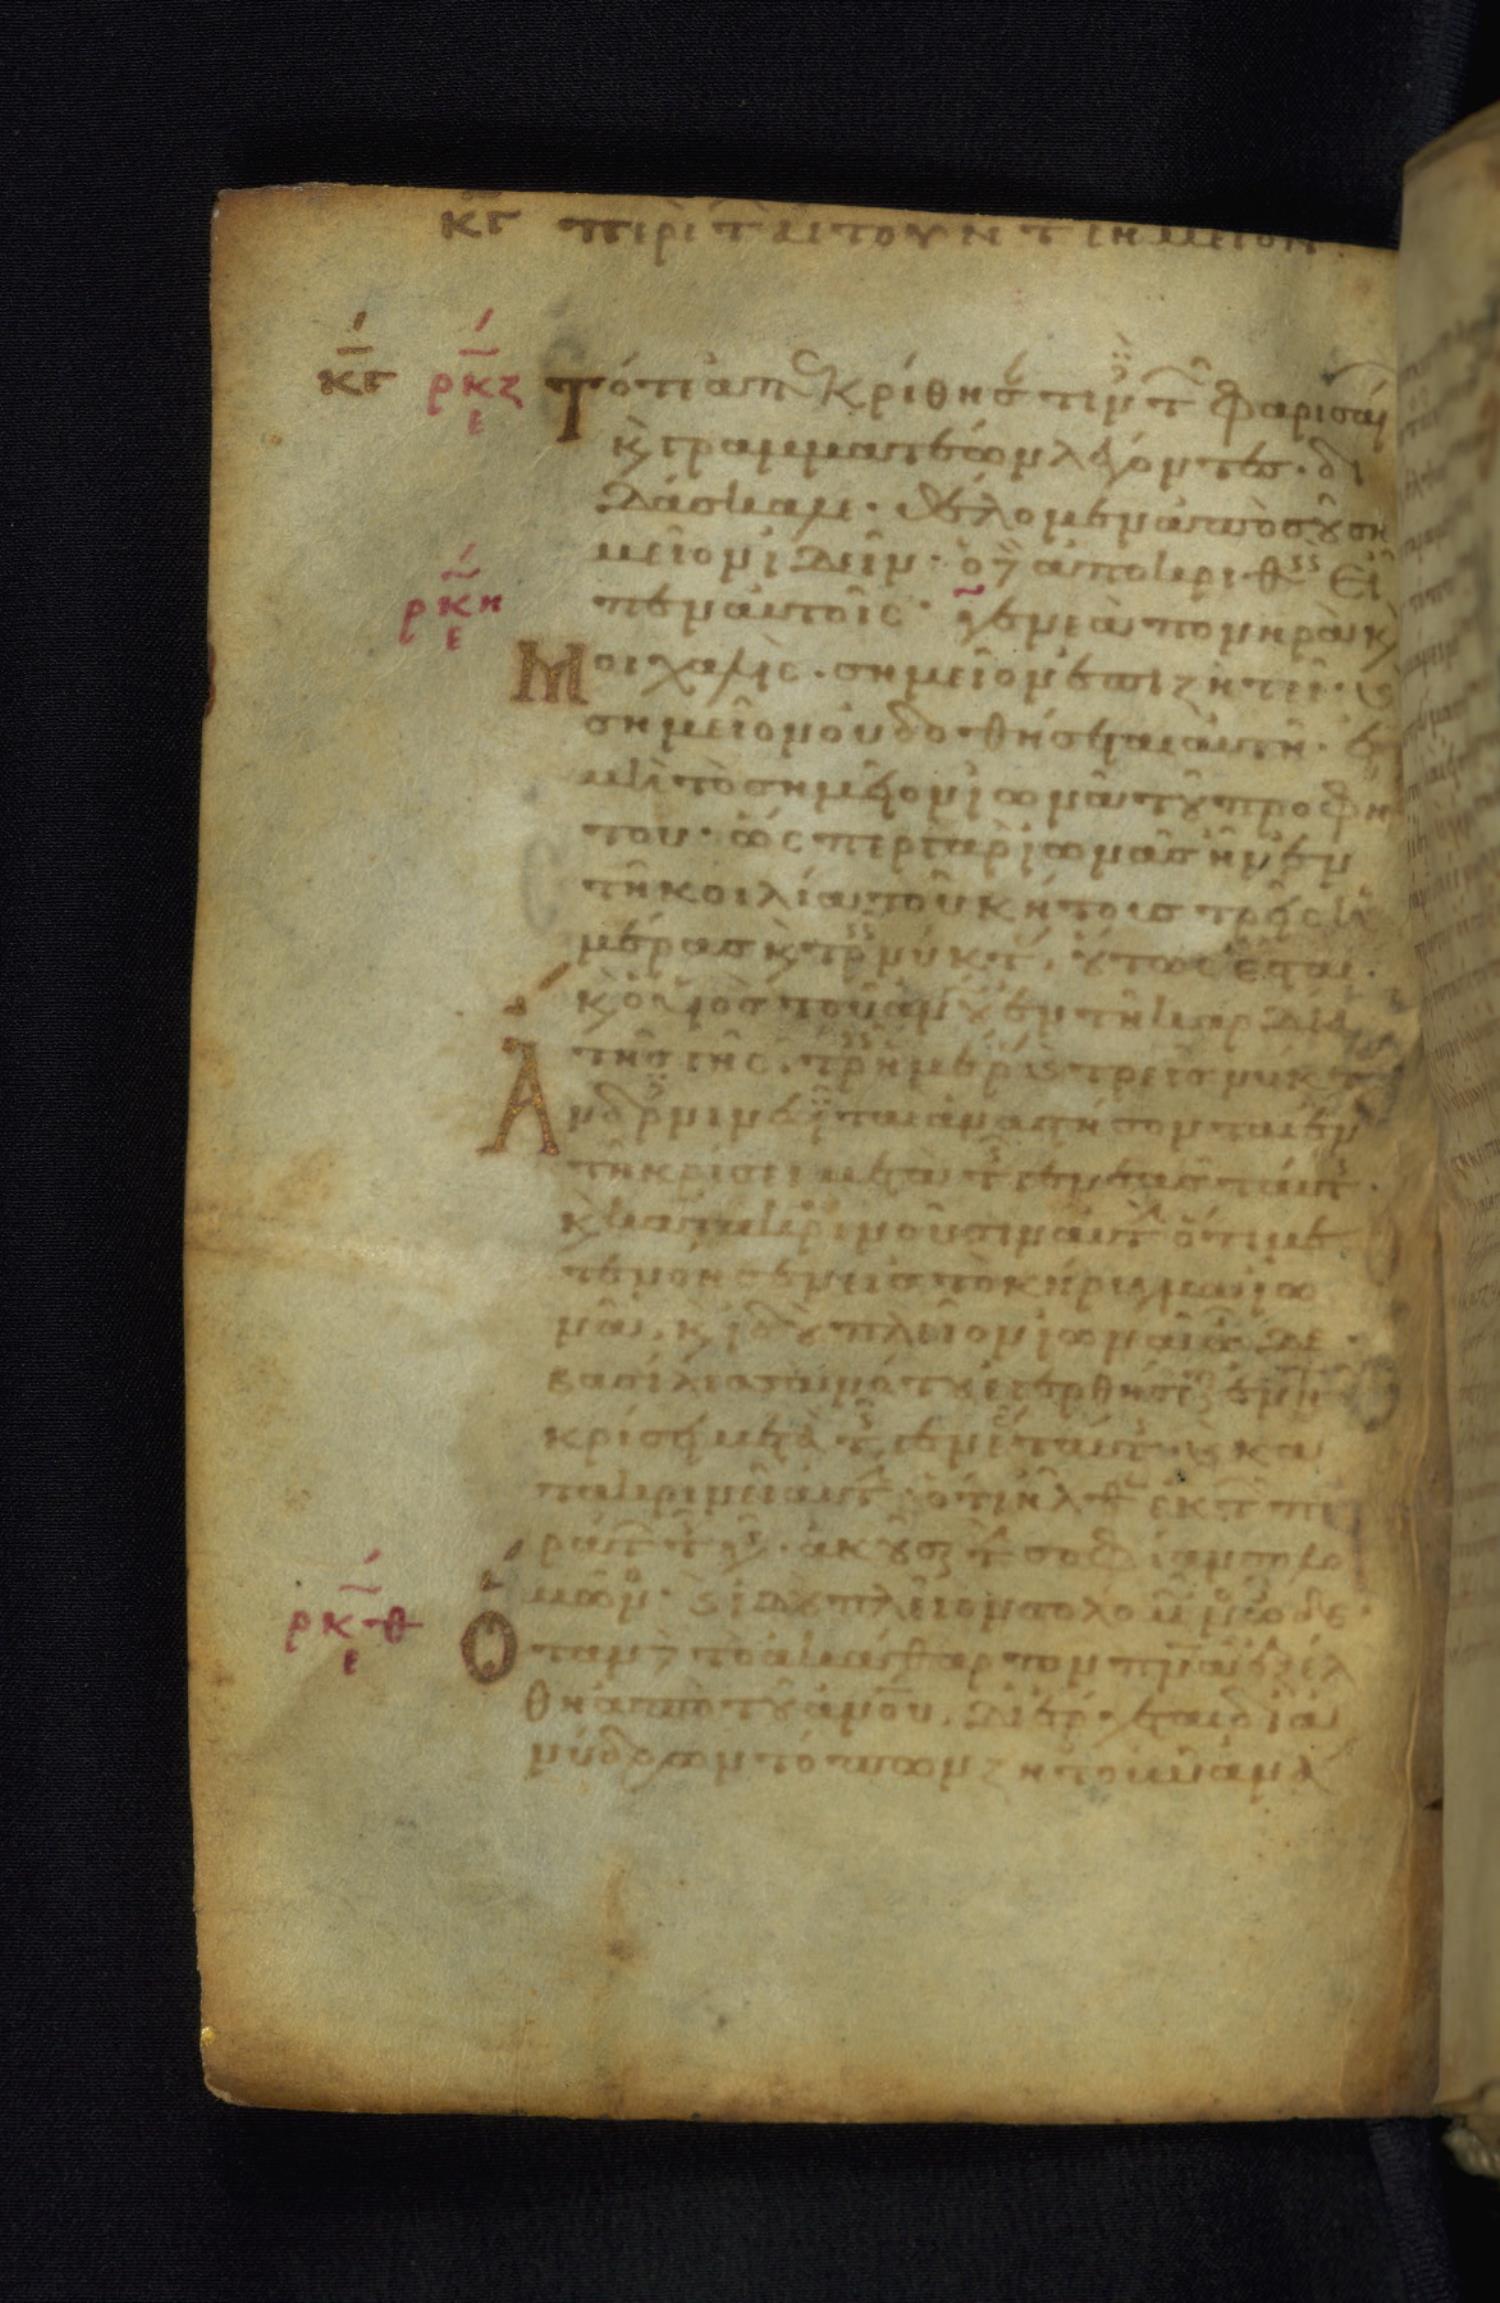 κγ περὶ τ αἰτουντ σημειον
κγ ρκζ Τότε ἀπεκρίθησ τινὲσ τ φαρισαί
ε
κ γραμματέων λέγοντεσ · δι
δάσκαλε · θέλομεν ἀπὸ σοῦ ση
μεῖον ἰδεῖν · ὁ δὲ ἀποκριθεὶσ εἶ
ρκη πεν αὐτοῖς · γενεὰ πονηρὰ κ
ε
Μοιχαλὶς · σημεῖον ἐπιζητεῖ · κ
σημεῖον οὐ δοθήσεται αὐτῆ · εἰ
μὴ τὸ σημεῖον ἰωνᾶ τοῦ προφή
του · ὥς περ γὰρ ἰωνᾶσ ἦν ἐν
τῆ κοιλία τοῦ κήτουσ τρεῖς ἡ
μέρασ κ τρεῖσ νύκτ · οὕτως ἔσται
κ ὁ υἱὸσ τοῦ ἀνου ἐν τῆ καρδία
τῆσ γῆς · τρεῖσ ἡμέρ κ τρεῖσ νύκτ
Ἄνδρεσ νινευῖται ἀναστήσονται ἐν
τῆ κρίσει μετὰ τ γενεᾶσ ταύτ ·
κ κατακρινοῦσιν αὐτ ὅτι με
τενόησαν εἰσ τὸ κήρυγμα ἰω
νᾶ · κ ἰδοὺ πλεῖον ἰωνᾶ ὧδε ·
βασίλισσα νότου ἐγερθήσετ ἐν τῆ
κρίσει μετὰ τ γενε ταύτ · κ κα
τακρινεῖ αὐτ · ὅτι ἦλθεν ἐκ τ πε
ράτ τ γ · ἀκοῦσ τ σοφίαν σολο
μῶν · κ ἰδοὺ πλεῖον σολομῶν ὧδε ·
ρκθ Ὅταν δὲ τὸ ἀκάθαρτον πνα ἐξέλ
ε
θη ἀπὸ τοῦ ἀνου · διέρχεται δι ἀ
νύδρων τόπων ζητοῦν ἀνά